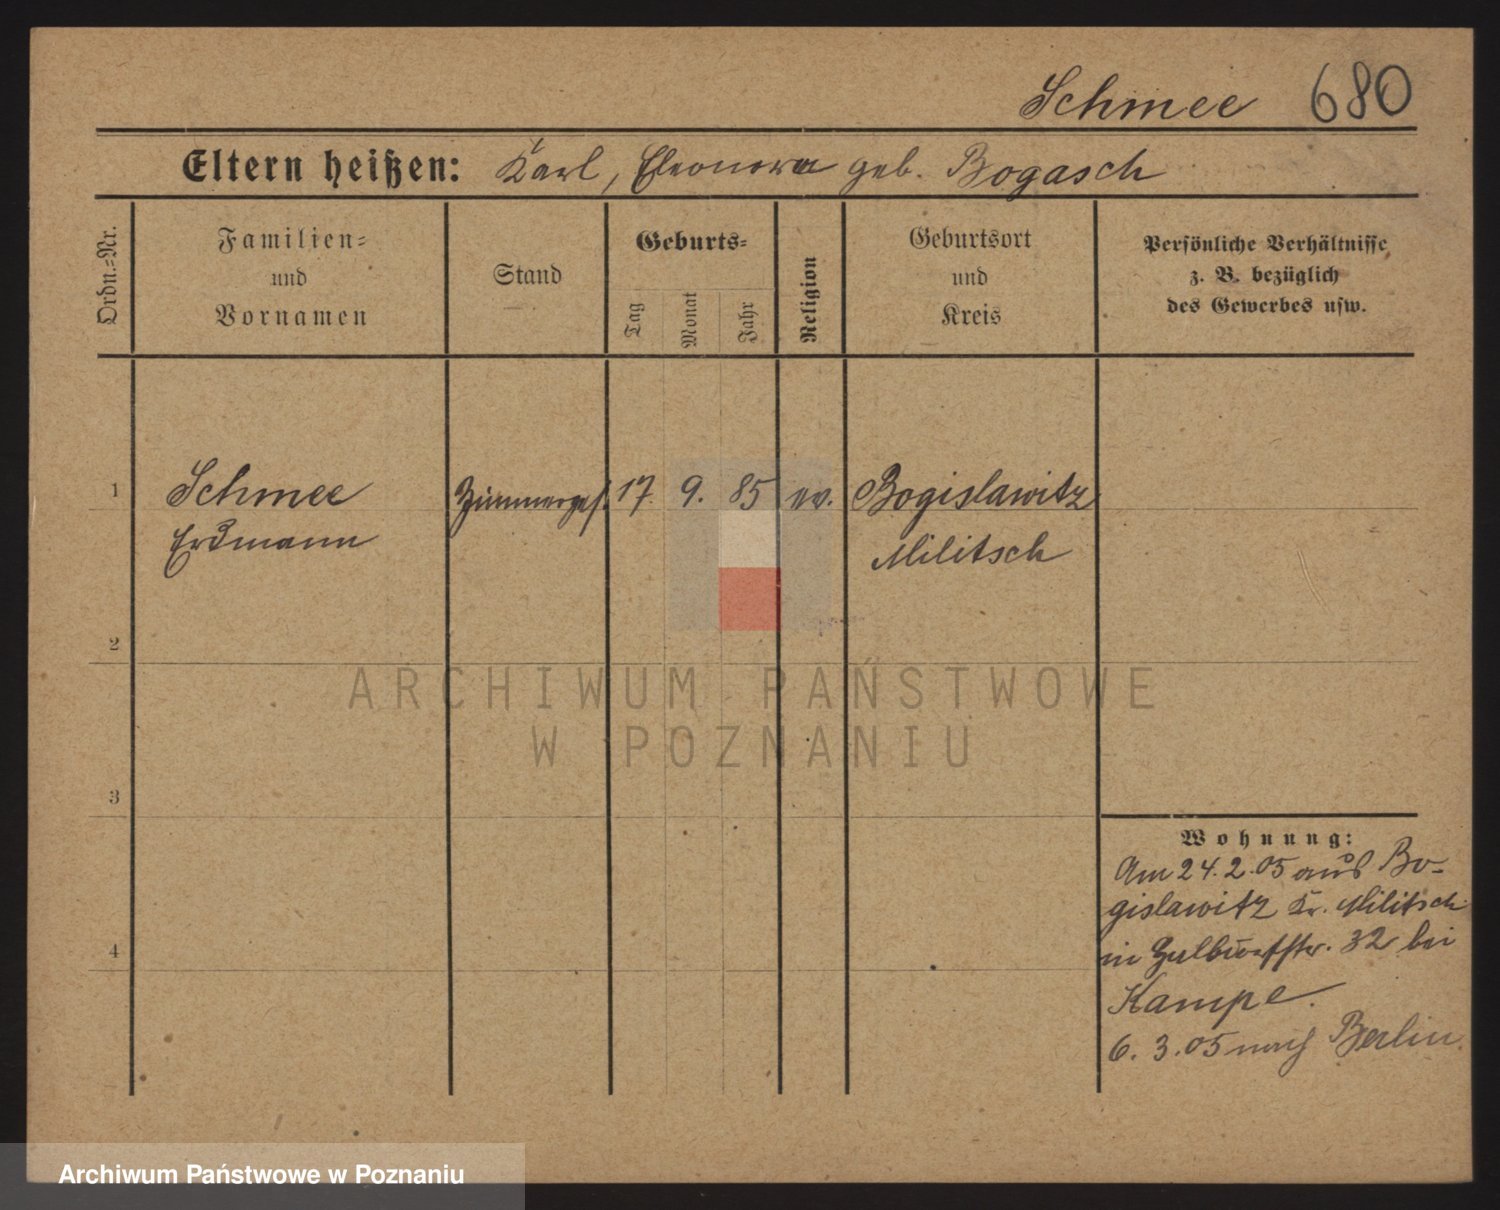 Schmee 680
Eltern heißen: Karl, Eleonora geb. Bogasch
Ordn.-Nr.
Familien-
und
Vornamen
Stand
Geburts-
Tag
Monat
Jahr
Religion
Geburtsort
und
Kreis
Persönliche Verhältnisse
z. B. bezüglich
des Gewerbes usw.
1 Schmee Zimmerges. 17. 9. 85 ev. Bogislawitz
Erdmann Militsch
2
ARCHIWUM PAŃSTWOWE
W POZNANIU
3
Wohnung:
Am 24.2.05 aus Bo-
gislawitz Kr. Militsch
4
in 32 bei
Kampe.
6. 3. 05 nach Berlin.
Archiwum Państwowe w Poznaniu